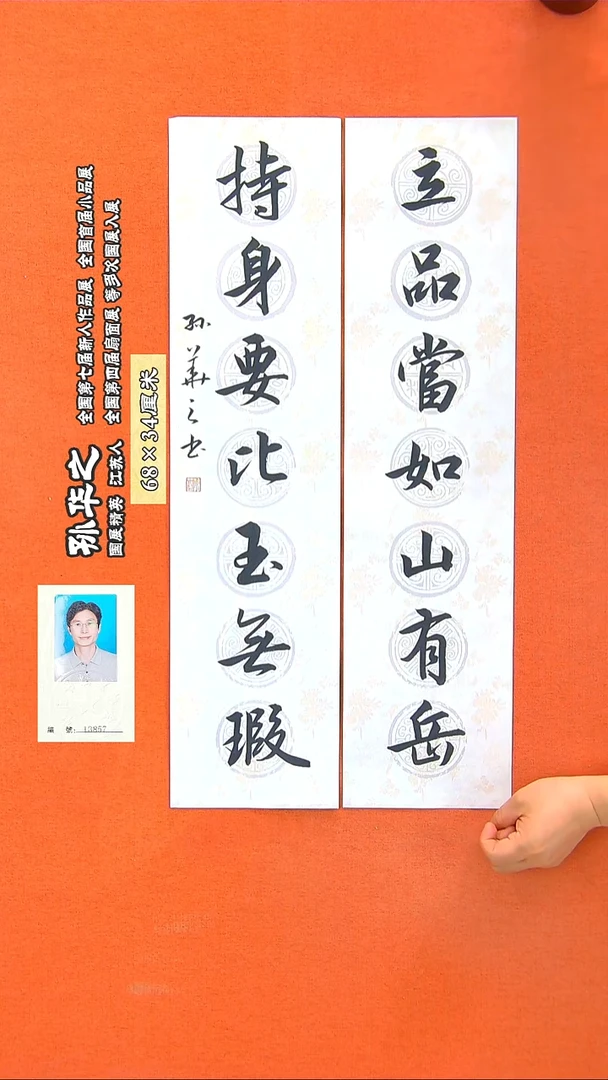 立品當如山有岳
持身要比玉無瑕
孫華之書
孙华之
全国第七届新人作品展 全国首届小品展
国展精英 江苏人 全国第四届扇面展 等多次国展入展
68×34厘米
編 號: 13857